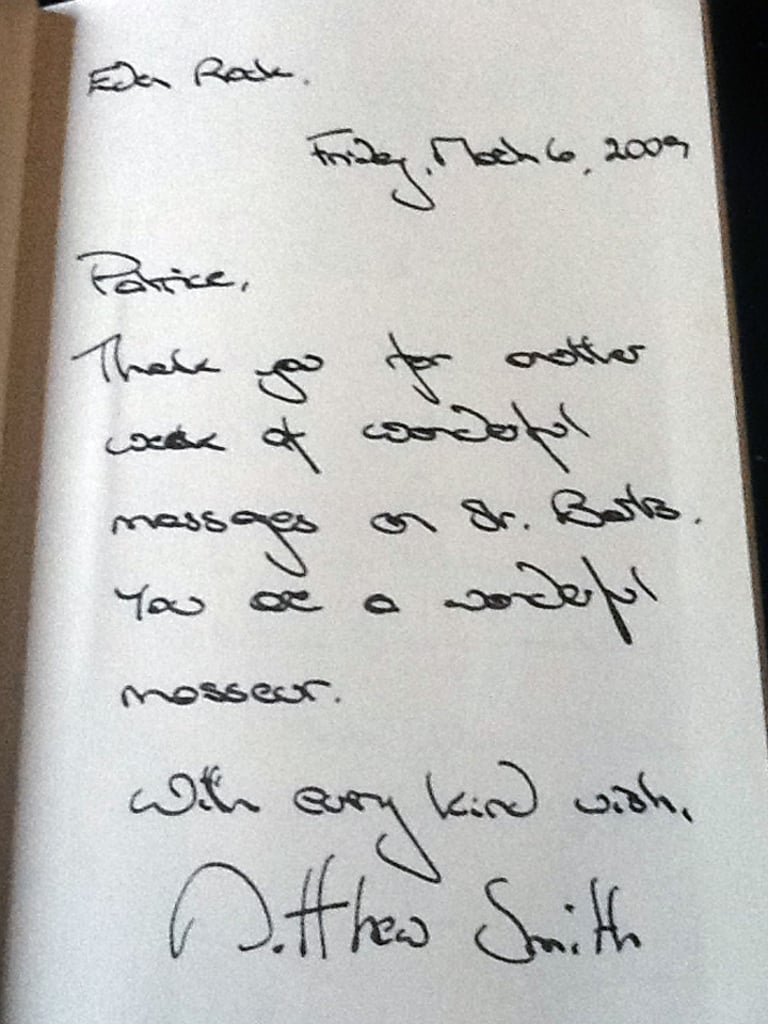 Eden Rock.
Friday, March 6, 2009
Patrice,
Thank you for another
week of wonderful
massages on St. Barts.
You are a wonderful
masseur.
With every kind wish,
Matthew Smith